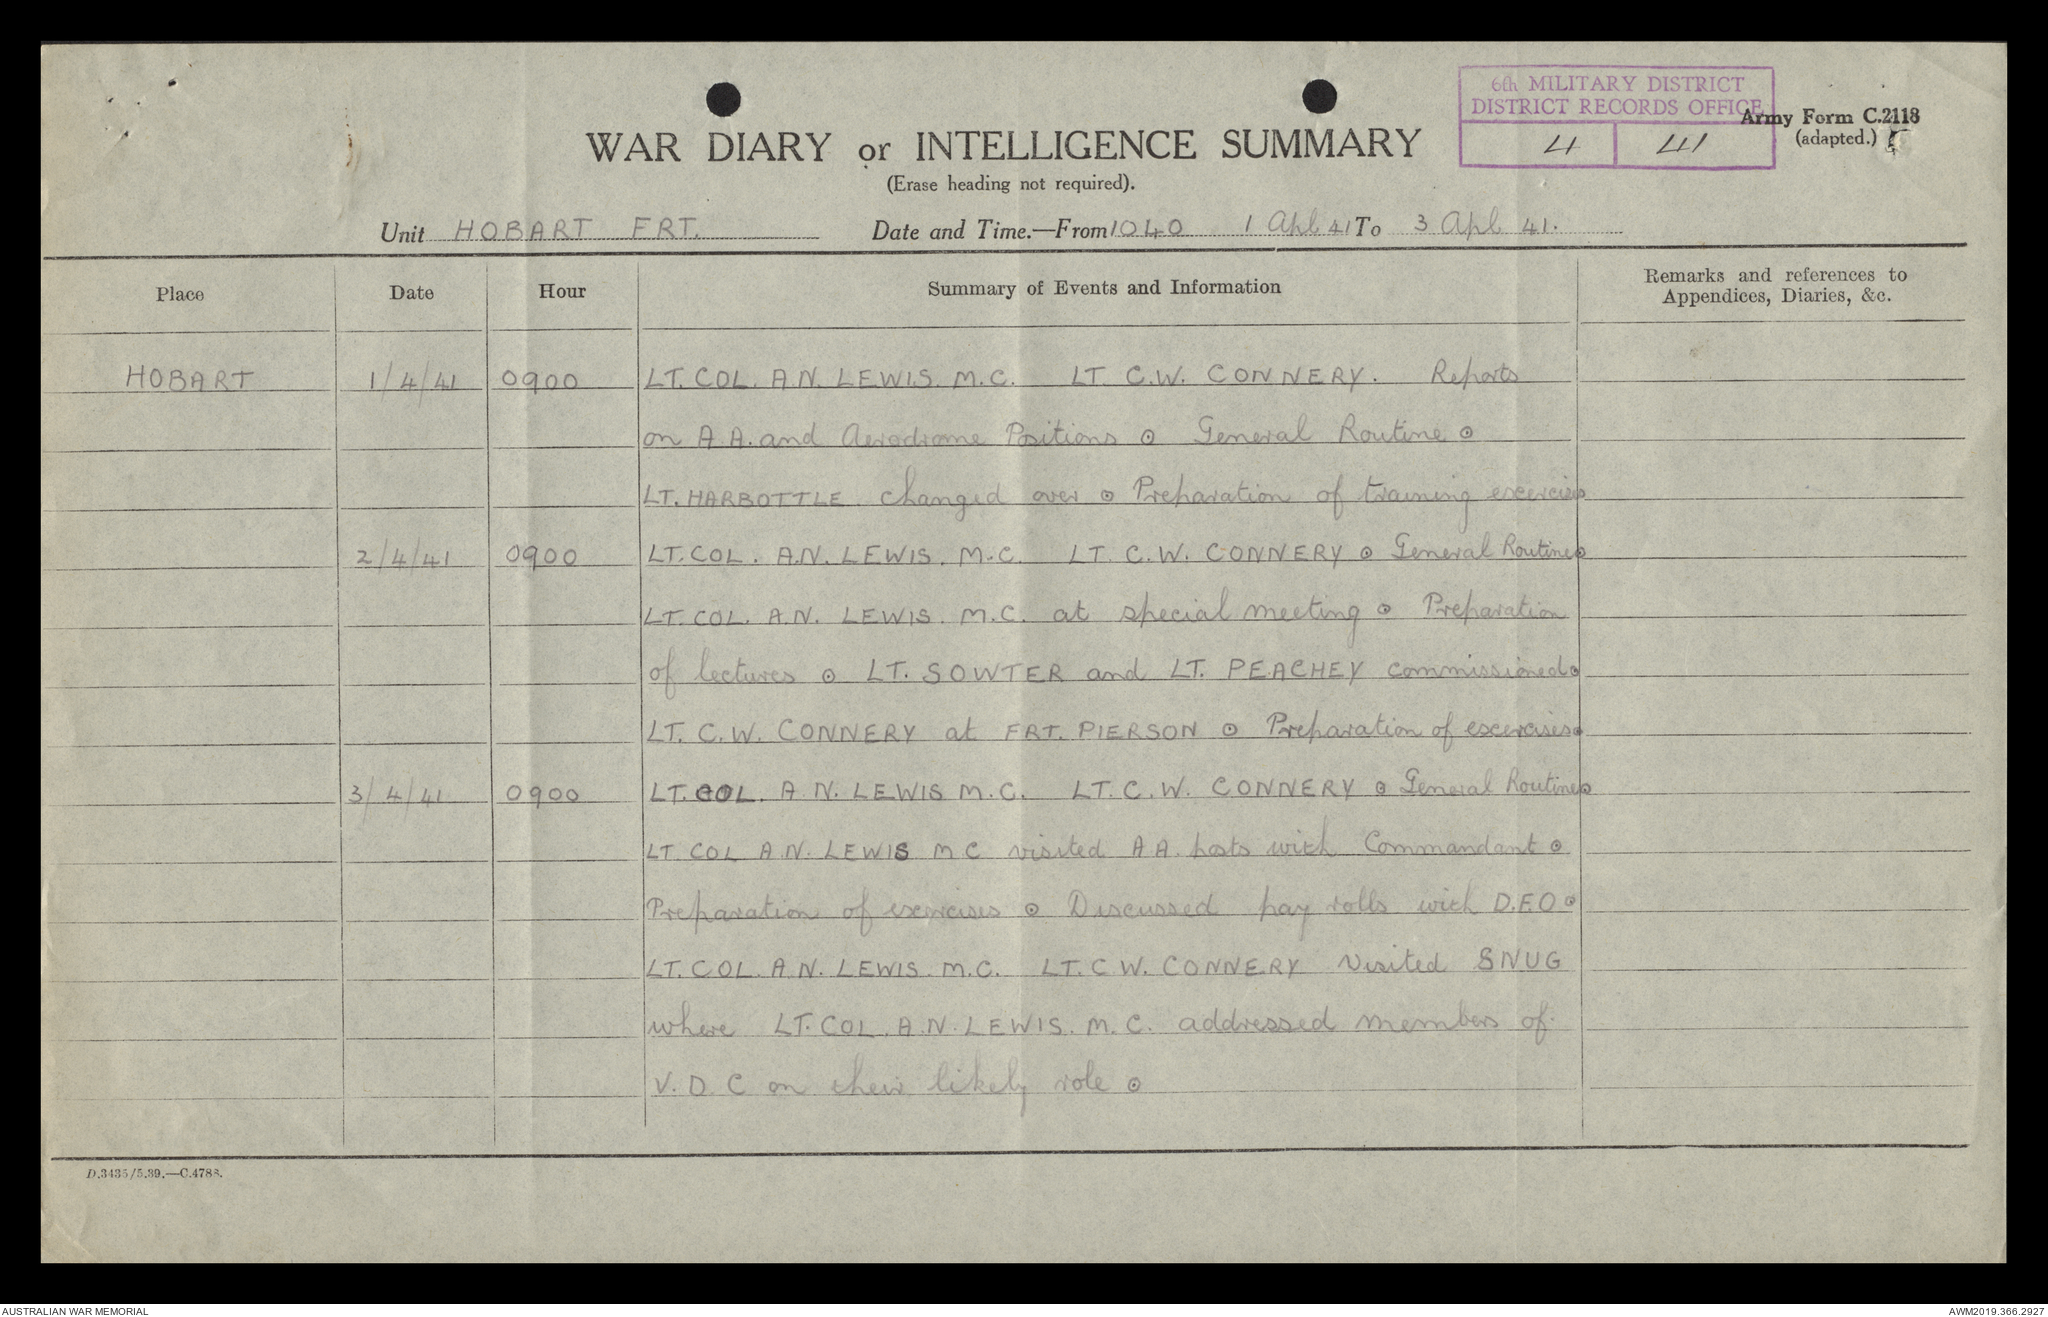 6th MILITARY DISTRICT
DISTRICT RECORDS OFFICE
4 41
Army Form C.2118
(adapted.)
WAR DIARY or INTELLIGENCE SUMMARY
(Erase heading not required).
Unit HOBART FRT. Date and Time.—From 1040 1 Apl 41 To 3 Apl 41.
Place Date Hour Summary of Events and Information Remarks and references to
Appendices, Diaries, &c.
HOBART 1/4/41 0900 LT. COL. A.N. LEWIS. M.C. LT C.W. CONNERY. Reports
on A.A. and Aerodrome Positions ⊙ General Routine ⊙
LT. HARBOTTLE changed over ⊙ Preparation of training excercises
2/4/41 0900 LT. COL. A.N. LEWIS. M.C. LT. C.W. CONNERY ⊙ General Routine ⊙
LT. COL. A.N. LEWIS. M.C. at special meeting ⊙ Preparation
of lectures ⊙ LT. SOWTER and LT. PEACHEY commissioned ⊙
LT. C.W. CONNERY at FRT. PIERSON ⊙ Preparation of excercises ⊙
3/4/41 0900 LT. COL. A N. LEWIS M.C. LT. C.W. CONNERY ⊙ General Routine ⊙
LT COL A.N. LEWIS M C visited A A. posts with Commandant ⊙
Preparation of exercises ⊙ Discussed pay rolls with D.F.O ⊙
LT. COL. A.N. LEWIS. M.C. LT. C W. CONNERY visited SNUG
where LT. COL. A.N. LEWIS. M.C. addressed members of
V. D. C on their likely role ⊙
D.3435/5.39.—C.4788.
AUSTRALIAN WAR MEMORIAL AWM2019.366.2927